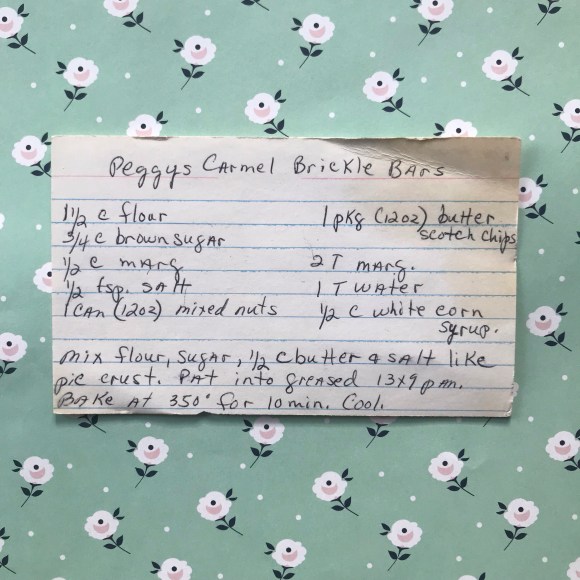 Peggys Carmel Brickle Bars
1 1/2 c flour
3/4 c brown sugar
1/2 c marg
1/2 tsp. salt
1 can (12oz) mixed nuts
1 pkg (12oz) butter
scotch chips
2 T marg.
1 T water
1/2 c white corn
syrup.
mix flour, sugar, 1/2 c butter & salt like
pie crust. Pat into greased 13x9 pan.
Bake at 350° for 10 min. Cool.